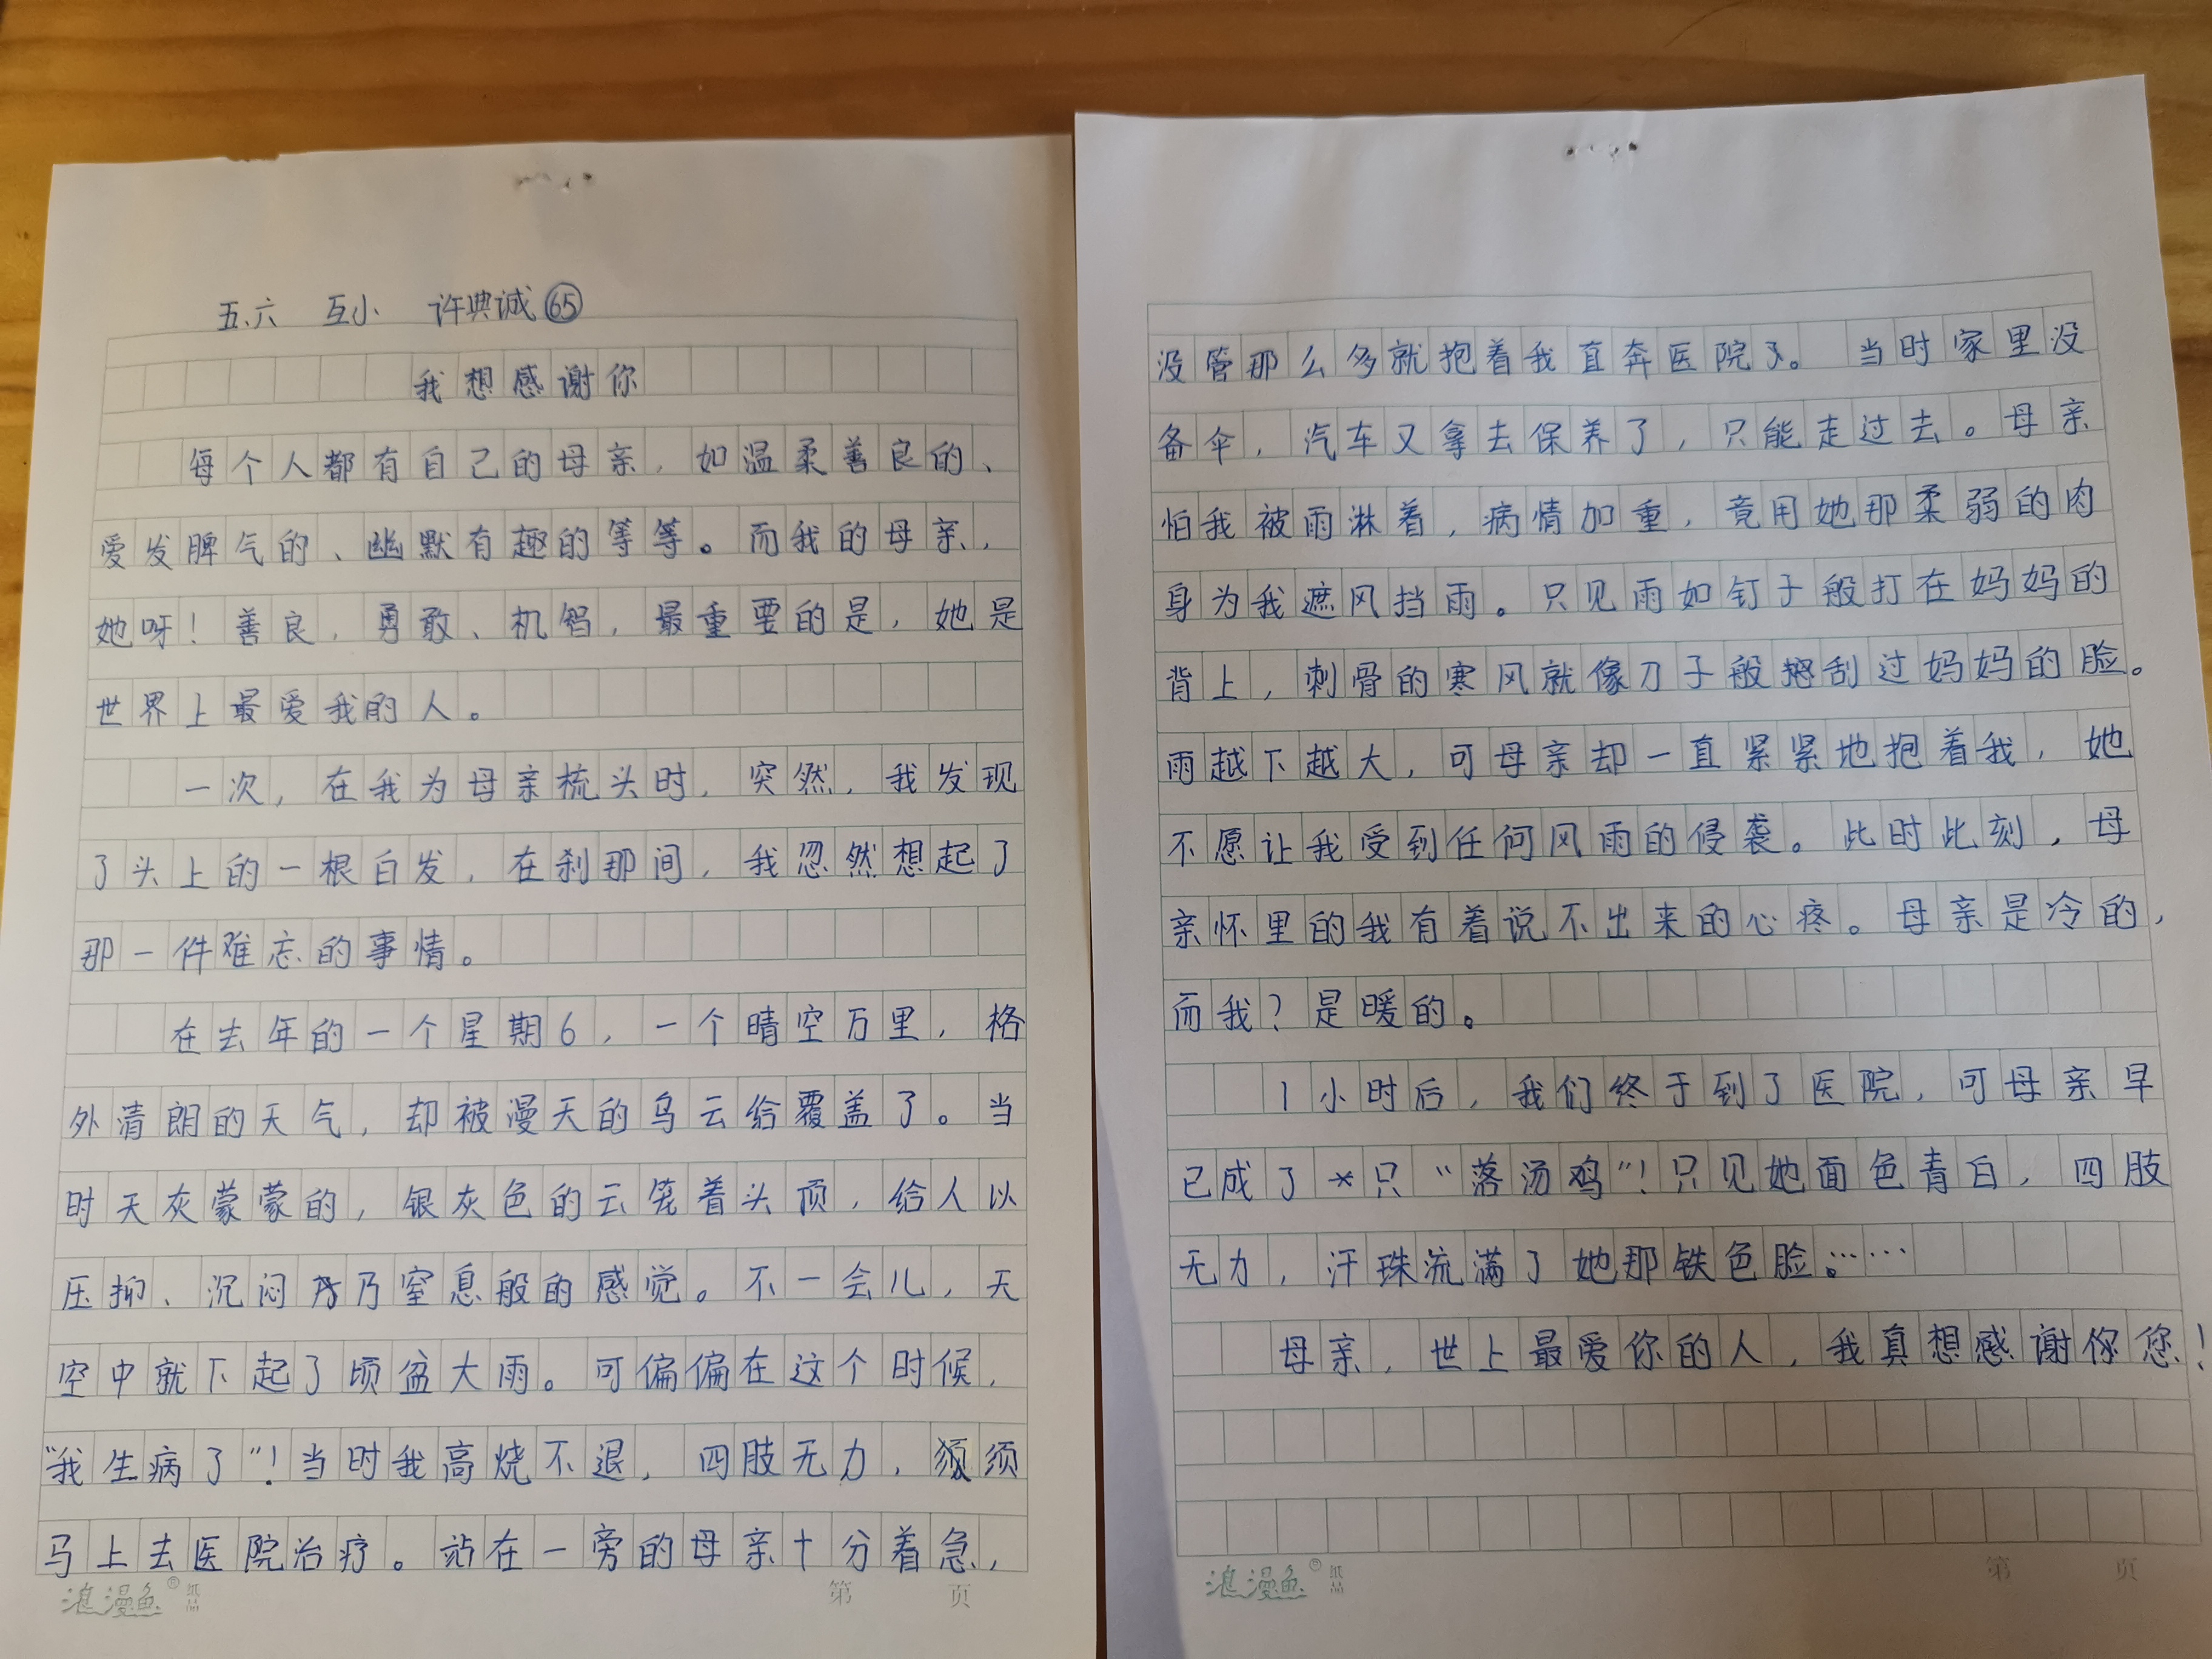 五.六 互小 许典诚 65
我想感谢你
每个人都有自己的母亲，如温柔善良的、
爱发脾气的、幽默有趣的等等。而我的母亲，
她呀！善良，勇敢、机智，最重要的是，她是
世界上最爱我的人。
一次，在我为母亲梳头时，突然，我发现
了头上的一根白发，在刹那间，我忽然想起了
那一件难忘的事情。
在去年的一个星期6，一个晴空万里，格
外清朗的天气，却被漫天的乌云给覆盖了。当
时天灰蒙蒙的，银灰色的云笼着头顶，给人以
压抑、沉闷乃窒息般的感觉。不一会儿，天
空中就下起了顷盆大雨。可偏偏在这个时候，
“我生病了”！当时我高烧不退，四肢无力，须须
马上去医院治疗。站在一旁的母亲十分着急，
浪漫鱼® 纸品 第 页
没管那么多就抱着我直奔医院了。当时家里没
备伞，汽车又拿去保养了，只能走过去。母亲
怕我被雨淋着，病情加重，竟用她那柔弱的肉
身为我遮风挡雨。只见雨如钉子般打在妈妈的
背上，刺骨的寒风就像刀子般刮过妈妈的脸。
雨越下越大，可母亲却一直紧紧地抱着我，她
不愿让我受到任何风雨的侵袭。此时此刻，母
亲怀里的我有着说不出来的心疼。母亲是冷的，
而我？是暖的。
1小时后，我们终于到了医院，可母亲早
已成了只“落汤鸡”！只见她面色青白，四肢
无力，汗珠流满了她那铁色脸。……
母亲，世上最爱你的人，我真想感谢你您！
浪漫鱼® 纸品 第 页